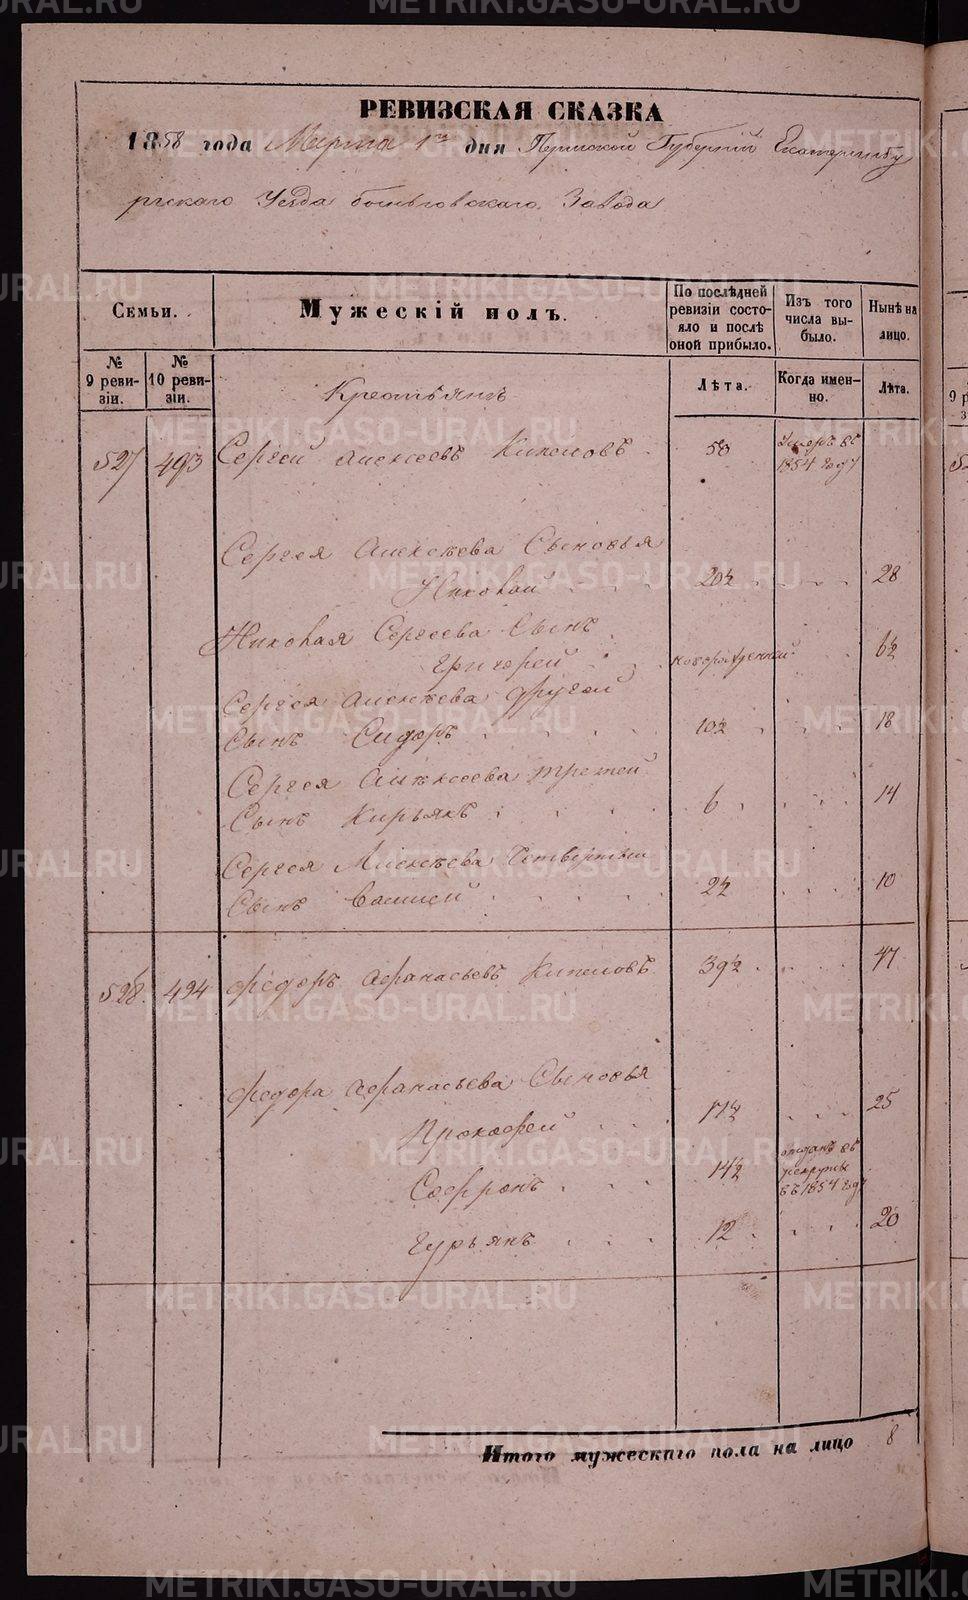 РЕВИЗСКАЯ СКАЗКА
1858 года Марта 1го дня Пермской Губернии Екатеринбу
ргскаго Уезда завода
Семьи.
Мужескій полъ.
По послѣдней ревизіи состояло и послѣ оной прибыло.
Изъ того числа выбыло.
Нынѣ на лицо.
№ 9 ревизіи.
№ 10 ревизіи.
Лѣта.
Когда именно.
Лѣта.
Крестьянъ
527 493 Сергей Алексеевъ 50 Умеръ въ 1854 году
Сергея Алексѣева Сыновья
Николай 20½ 28
Николая Сергеева Сынъ
Григорей новорожденной 6½
Сергея Алексѣева другой
Сынъ Сидоръ 10½ 18
Сергея Алексеева третей
Сынъ Кирьякъ 6 14
Сергея Алексѣева Четвертый
Сынъ Василей 2½ 10
528 494 Федоръ Афанасьевъ 39½ 47
Федора Афанасьева Сыновья
Прокофей 17½ 25
Софронъ 14½ отданъ въ рекруты въ 1854 году
Гурьянъ 12 20
Итого мужескаго пола на лицо 8
METRIKI.GASO-URAL.RU